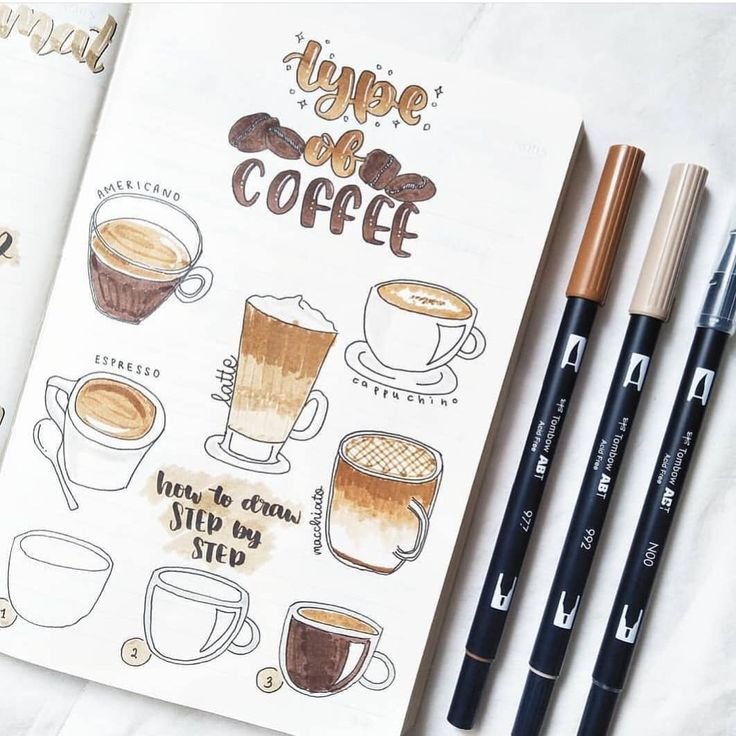 mat
type
of
COFFEE
AMERICANO
latte
cappuchino
ESPRESSO
macchiato
how to draw
STEP by
STEP
1
2
3
Tombow ABT
Acid Free
977
Tombow ABT
Acid Free
992
Tombow ABT
N00